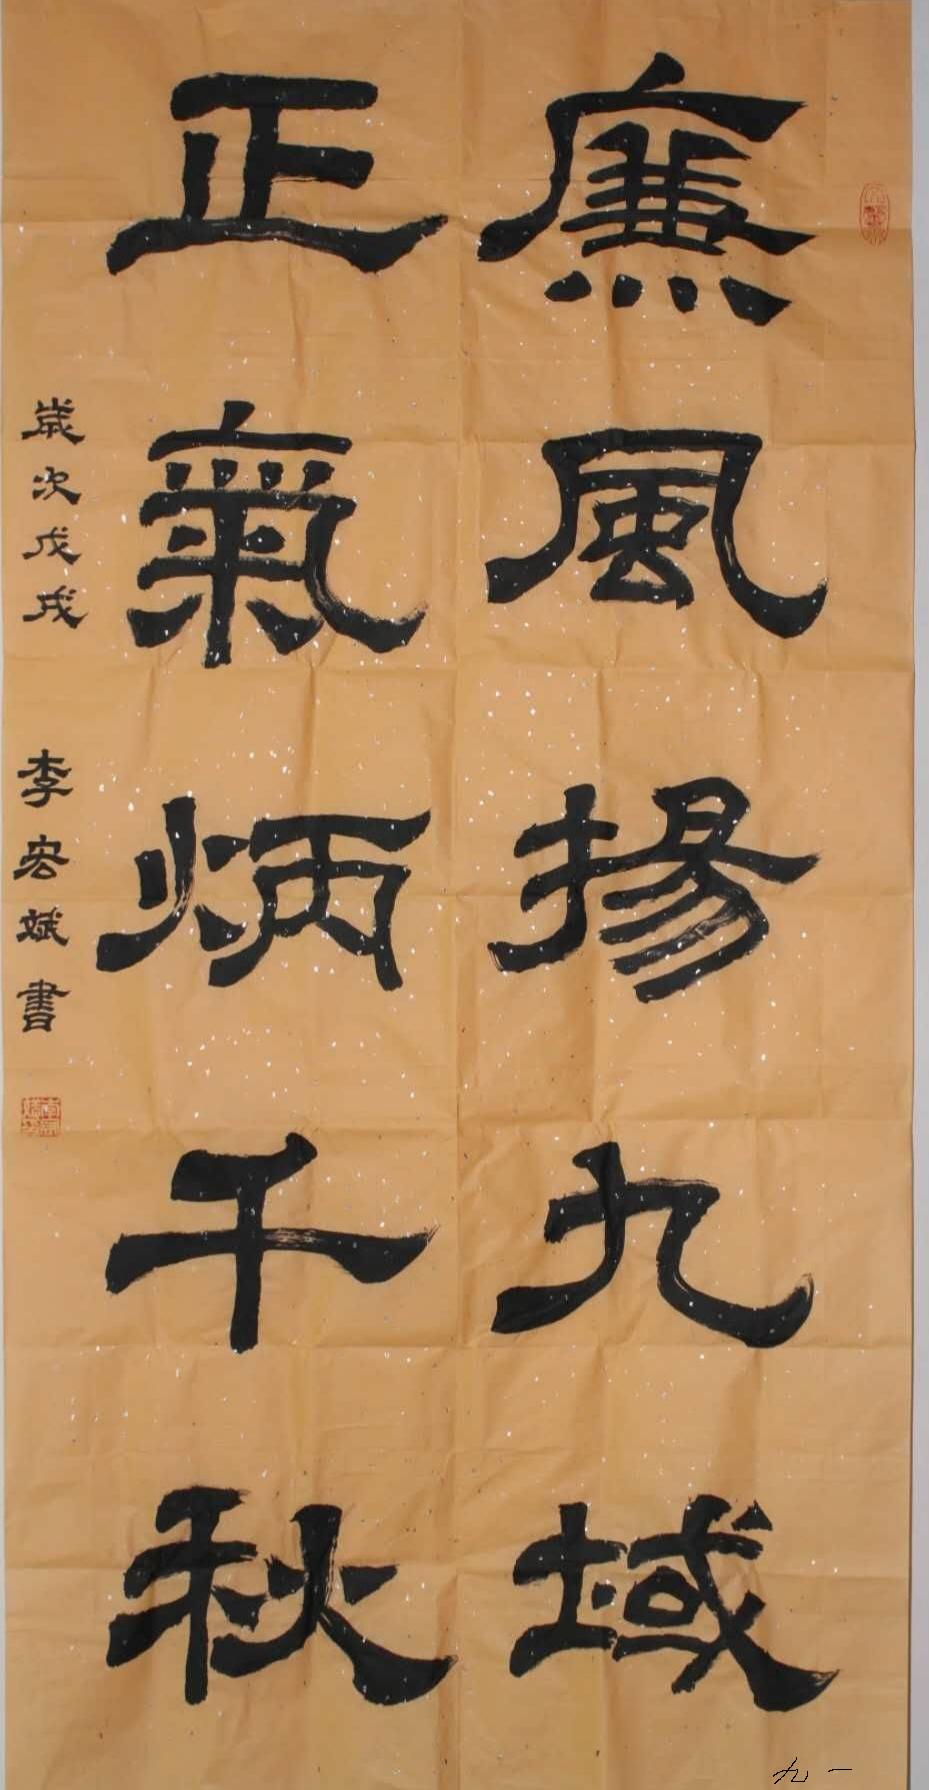 廉風揚九域
正氣炳千秋
歲次戊戌 李宏斌書
九一